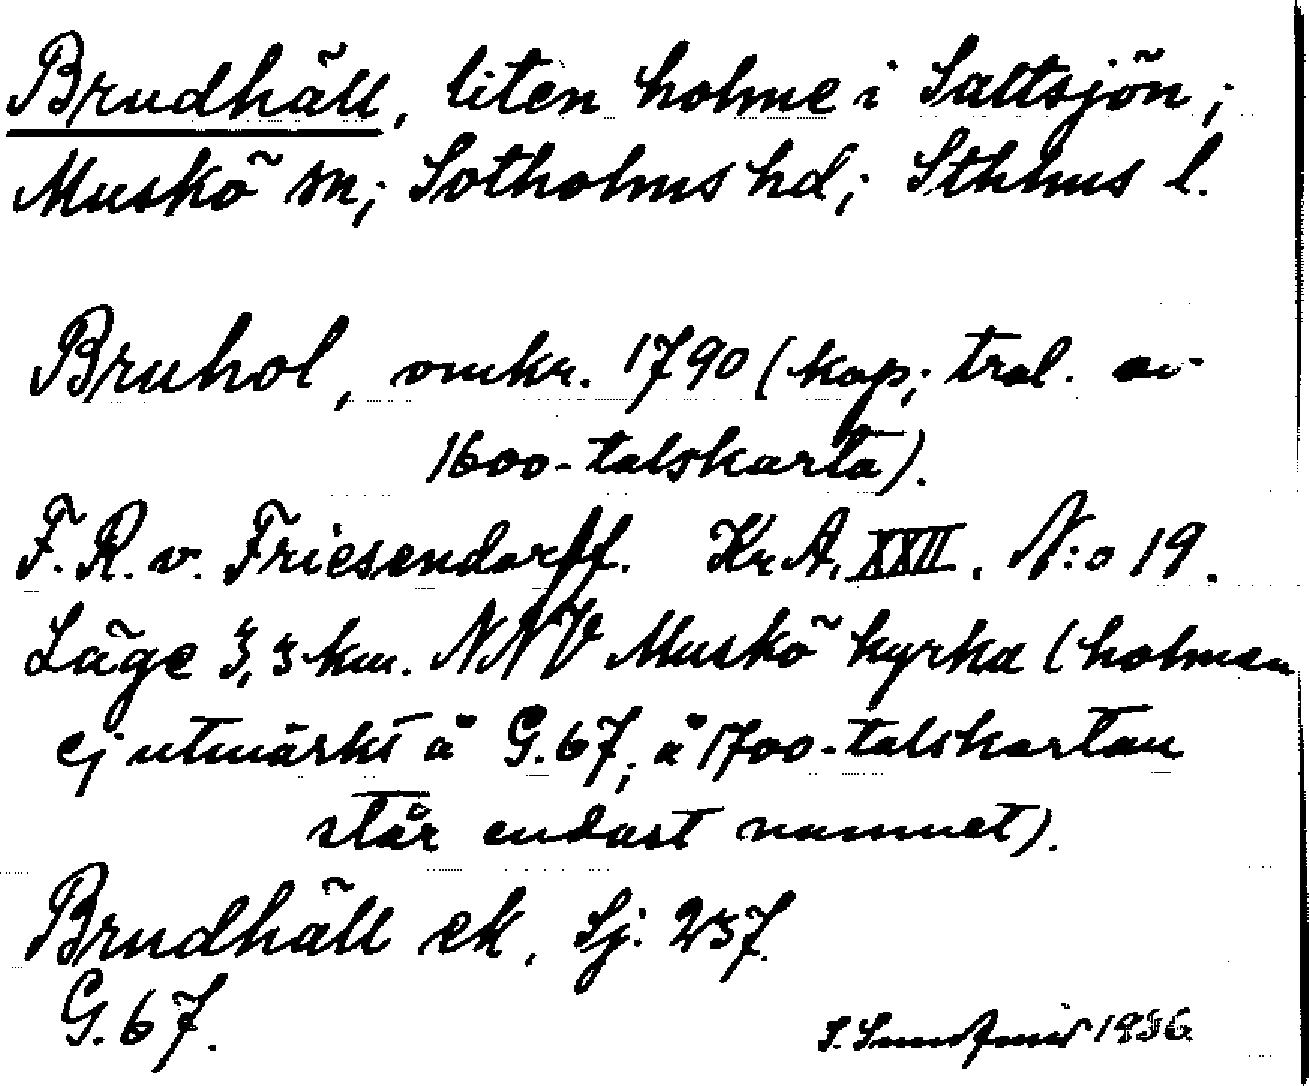 Brudhäll, liten holme i Saltsjön;
Muskö sn; Sotholms hd; Sthlms l.
Bruhol, omkr. 1790 (kop; trol. av
1600-talskarta).
F. R. v. Friesendorff. Kr. A. XXII. N:o 19.
Läge 3,3 km. NNV Muskö kyrka (holmen
ej utmärkt å G. 67; å 1700-talskartan
står endast namnet).
Brudhäll ek. Sj. 237.
G. 67.
S. 1936